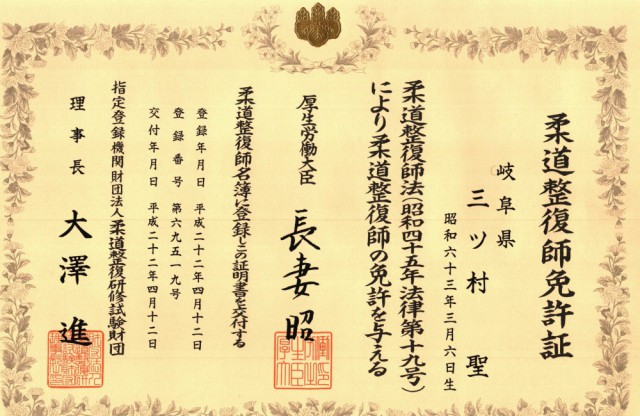 柔道整復師免許証
岐阜県
三ツ村 聖
昭和六十三年三月六日生
柔道整復師法(昭和四十五年法律第十九号)
により柔道整復師の免許を与える
厚生労働大臣 長妻昭
柔道整復師名簿に登録しこの証明書を交付する
登録年月日 平成二十二年四月十二日
登録番号 第六九五一九号
交付年月日 平成二十二年四月十二日
指定登録機関財団法人柔道整復研修試験財団
理事長 大澤進